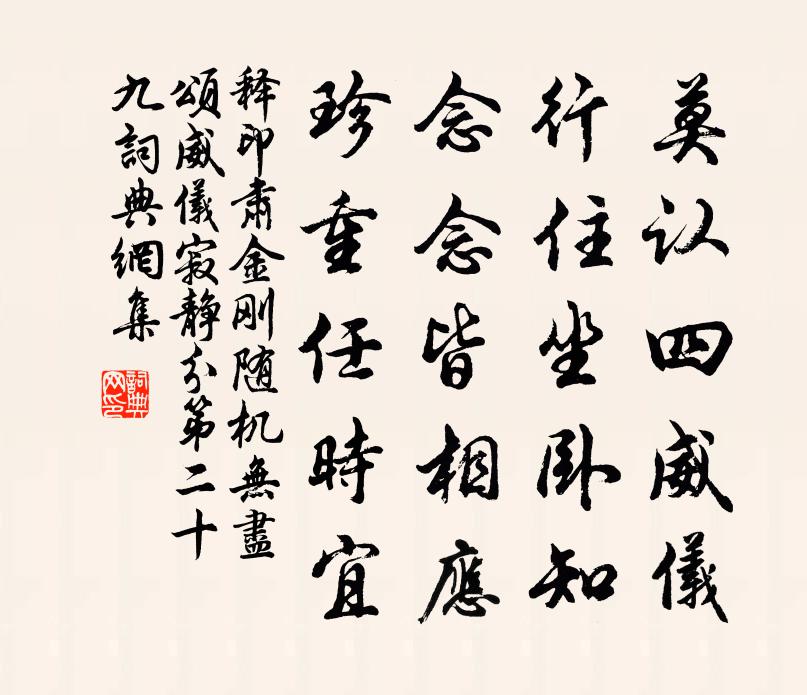 莫认四威儀
行住坐卧知
念念皆相應
珍重任時宜
释印肃金刚随机無盡
頌威儀寂静分第二十
九詞典網集
詞典网印